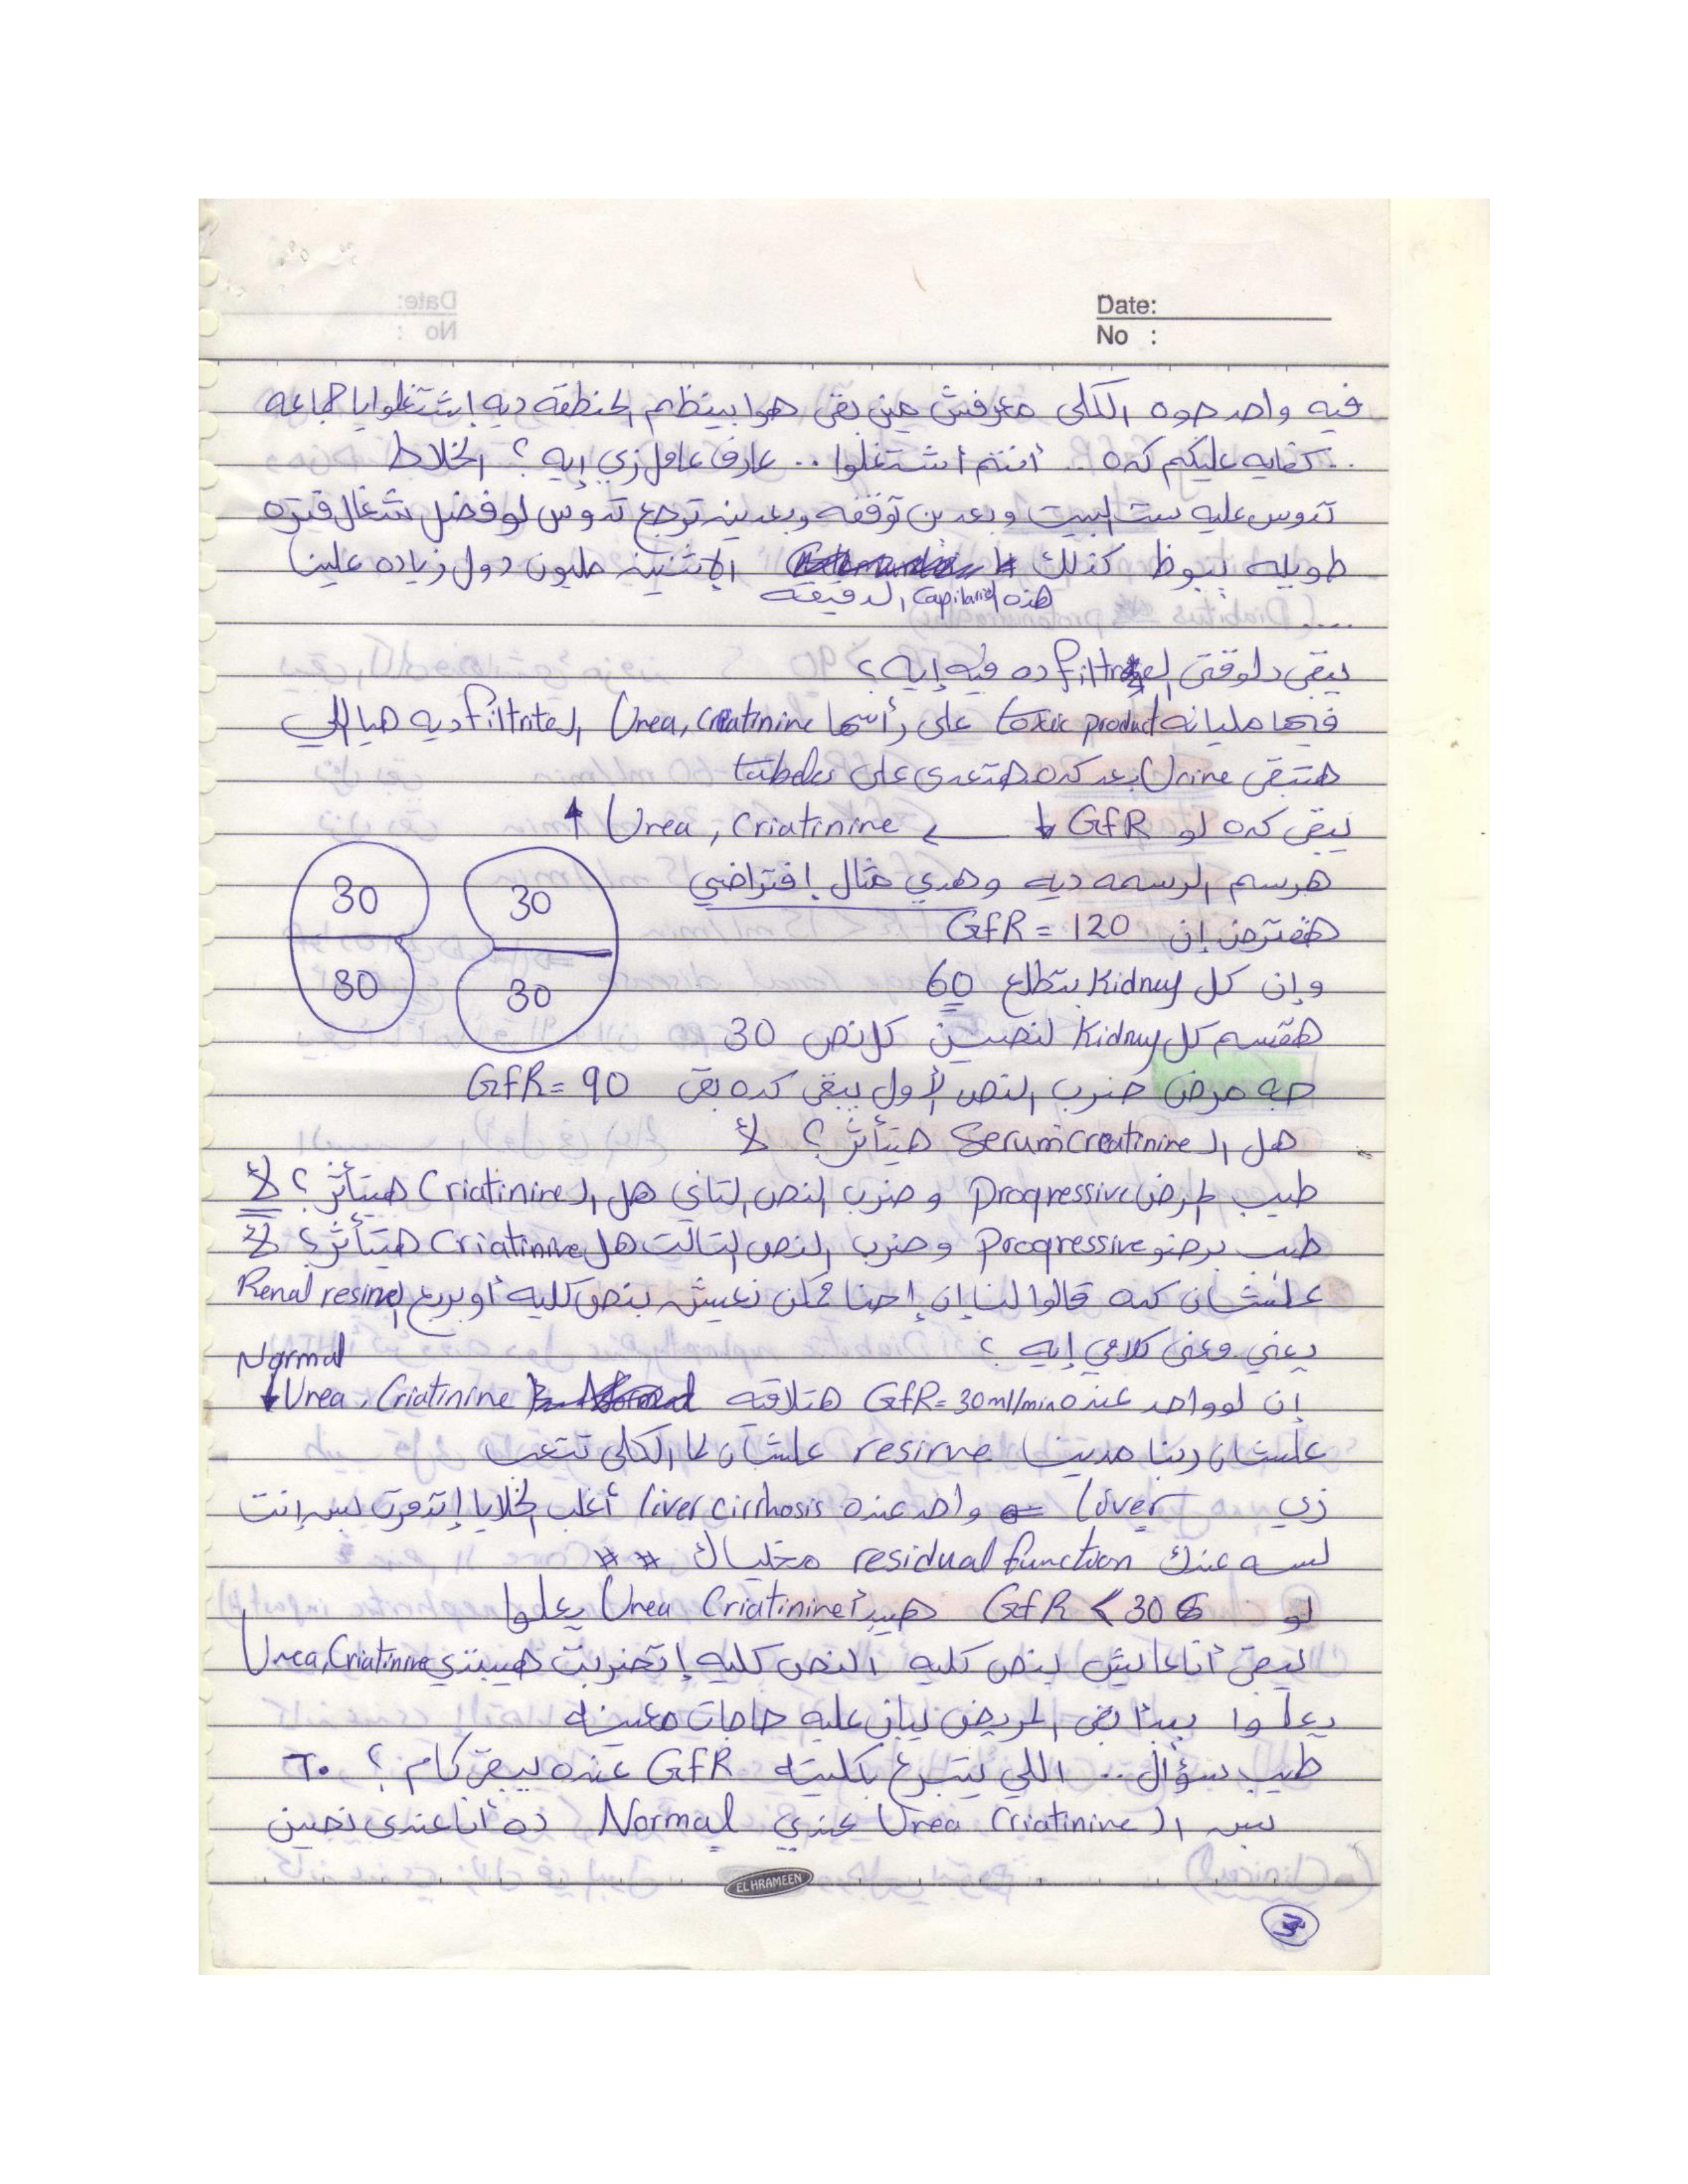 Date:
No :
فيه واحد جوه الكلى معرفش مين بقى هوا بينظم المنطقه ديه إشتغلوا يا جماعه
.. كفايه عليكم كده .. أنتم أشتغلوا .. عارف عامل زي إيه ؟ الخلاط
تدوس عليه ست البيت وبعدين توقفه وبعدين ترجع تدوس لو فضل شغال فتره
طويله يبوظ كذلك الإثنين مليون دول زياده علينا
هذه الـ Capilaries الدقيقه
....
يبقى دلوقتى الـ filtrate ده فيه إيه ؟
فيها مليانه toxic product على رأسها Urea, Creatinine الـ filtrite ديه هيا اللي
هتبقى Urine بعد كده هتعدى على tubeles
يبقى كده لو GFR ↓ ← Urea, Criatinine ↑
هرسم الرسمه ديه وهدي مثال إفتراضي
30 30
30 30
هفترض إن GFR = 120
وإن كل Kidney بتطلع 60
هقسم كل Kidney لنصين كل نص 30
جه مرض ضرب النص الأول يبقى كده بقى GFR = 90
هل الـ Serum creatinine هيتأثر ؟ لأ
طيب المرض Progressive وضرب النص التاني هل الـ Criatinine هيتأثر ؟ لأ
طيب برضو Progressive وضرب النص التالت هل Criatinine هيتأثر ؟ لأ
علشان كده قالوا لنا إن إحنا ممكن نعيش بنص كليه أو بربع الـ Renal resirve
يعني معنى كلامي إيه ؟
Normal
إن لو واحد عنده GFR = 30 ml/min هتلاقيه Urea, Criatinine ↓
علشان ربنا مدينا resirve علشان لما الكلى تتعب
زي Liver واحد عنده liver cirrhosis أغلب الخلايا إتدمرت بس إنت
لسه عندك residual function مخلياك # #
لو GFR < 30 هيبدأ Urea Criatinine يعلوا
يبقى أنا عايش بنص كليه النص كليه إتضربت هيبتدي Urea, Criatinine
يعلوا يبدأ بقى المريض يبان عليه حاجات معينه
طيب سؤال .. اللي يتبرع بكليته GFR عنده يبقى كام ؟ ٦٠
بس الـ Urea Criatinine عندي Normal ده أنا عندى نصين
EL HRAMEEN
3